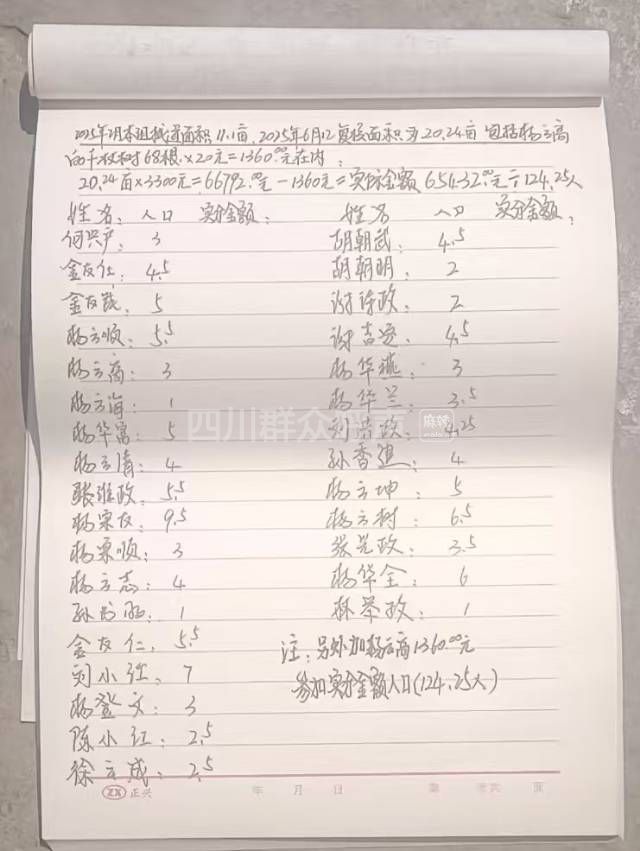 2025年7月本组栽苗面积11.1亩，2025年6月12复核面积为20.24亩 包括杨立高
白千枝树68根×20元=1360.00元在内；
20.24亩×3300元=66792.00元-1360元=实际金额65432.00元÷124.25人
姓名： 人口 实分金额：
何兴户： 3
金友仁： 4.5
金友 5
杨立顺： 5.5
杨立高： 3
杨立海： 1
杨华富： 5
杨立清： 4
张维政： 5.5
杨宗友： 9.5
杨宗顺： 3
杨立志： 4
孙 ： 1
金友仁： 5.5
刘小红： 7
杨登文： 3
陈小江： 2.5
徐立成： 2.5
姓名 人口 实分金额：
胡朝武： 4.5
胡朝明： 2
谢 政： 2
谢吉 ： 4.5
杨华燕： 3
杨华兰： 3.5
刘 政： 4.25
孙香 ： 4
杨立坤： 5
杨立树： 6.5
张 政： 3.5
杨华全： 6
林 ： 1
注：另外加杨立高1360.00元
参加实分金额人口(124.25人)
四川群众 麻辣
ZX 正兴 年 月 日 第 页共 页